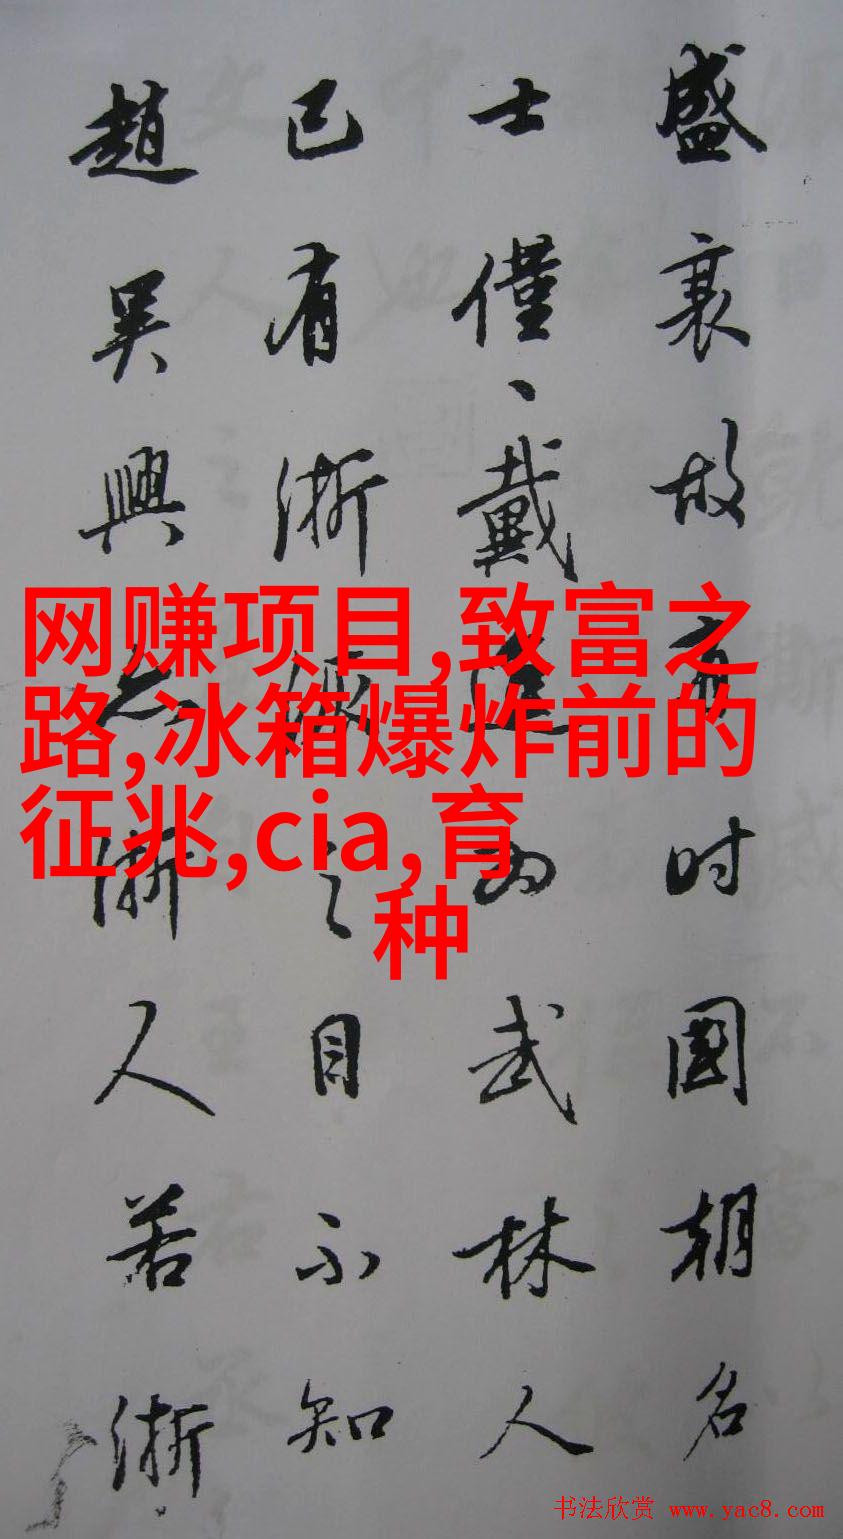 盛衰故有时國朝名
士僅、戴進为武林人
已有浙之目不知
趙吳興浙人若浙
网赚项目,致富之
路,冰箱爆炸前的
征兆,cia,育
种
书法欣赏 www.yac8.com